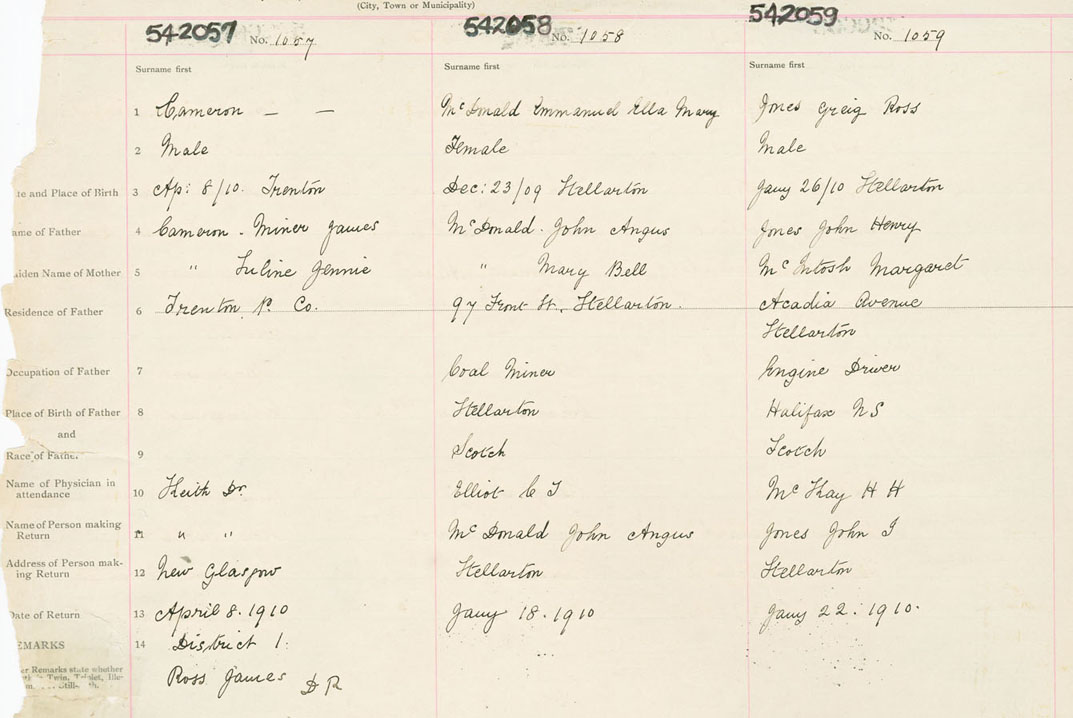 (City, Town or Municipality)
542057 No. 1057 542058 No. 1058 542059 No. 1059
Surname first Surname first Surname first
1 Cameron — — McDonald Emmanuel Ella Mary Jones Greig Ross
2 Male Female Male
te and Place of Birth 3 Ap: 8/10. Trenton Dec: 23/09 Stellarton Jany 26/10 Stellarton
ame of Father 4 Cameron - Miner James McDonald. John Angus Jones John Henry
aiden Name of Mother 5 " Jennie " Mary Bell McIntosh Margaret
Residence of Father 6 Trenton P. Co. 97 Front St., Stellarton. Acadia Avenue
Stellarton
Occupation of Father 7 Coal Miner Engine Driver
Place of Birth of Father 8 Stellarton Halifax NS
and
Race of Father 9 Scotch Scotch
Name of Physician in
attendance 10 Keith Dr. Elliot C J McKay H H
Name of Person making
Return 11 " " McDonald John Angus Jones John J
Address of Person mak-
ing Return 12 New Glasgow Stellarton Stellarton
Date of Return 13 April 8. 1910 Jany 18. 1910 Jany 22. 1910.
EMARKS 14 District 1.
er Remarks state whether
Twin, Triplet, Ille-
Still-
Ross James D R